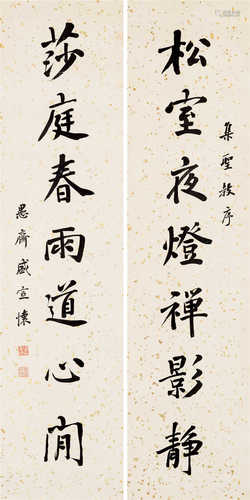 集聖教序
松室夜燈禪影靜
莎庭春雨道心閒
愚齋盛宣懷